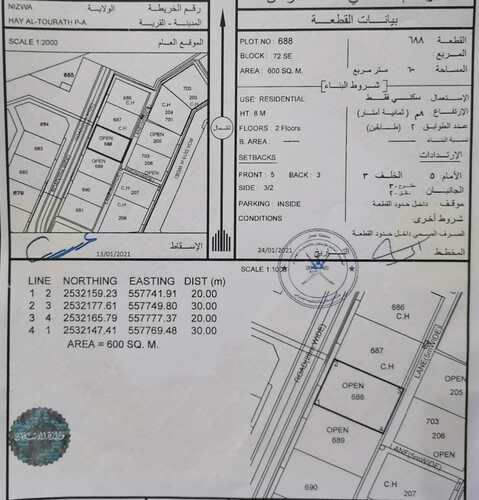 NIZWA
الولاية
رقم الخريطة
HAY AL-TOURATH P-A
المدينة - القرية
SCALE 1:2000
الموقع العام
685
684
683
682
681
679
686
C.H
687
C.H
OPEN
688
OPEN
689
690
C.H
207
C.H
208
703
704
OPEN
205
703
206
C.H
C.H
الشمال
13/01/2021
الإسقاط
بيانات القطعة
PLOT NO : 688
٦٨٨
القطعة
BLOCK : 72 SE
المربع
AREA : 600 SQ. M.
٦٠٠ متر مربع
المساحة
شروط البناء
USE: RESIDENTIAL
سكني فقط
الإستعمال
HT: 8 M
٨م (ثمانية أمتار)
الإرتفاع
FLOORS : 2 Floors
٢ (طابقين)
عدد الطوابق
B. AREA : ——
نسبة البناء
SETBACKS
الإرتدادات
FRONT : 5 BACK : 3
الأمام ٥ الخلف ٣
SIDE : 3/2
الجانبان
PARKING : INSIDE
موقف : داخل حدود القطعة
CONDITIONS
شروط أخرى
الصرف الصحي داخل حدود القطعة
24/01/2021
تاريخ
المخطط
LINE NORTHING EASTING DIST (m)
1 2 2532159.23 557741.91 20.00
2 3 2532177.61 557749.80 30.00
3 4 2532165.79 557777.37 20.00
4 1 2532147.41 557769.48 30.00
AREA = 600 SQ. M.
SCALE 1:1000
686
C.H
687
C.H
OPEN
688
OPEN
689
690
C.H
207
OPEN
205
703
206
C.H
LANE(5mWIDE)
LANE(5mWIDE)